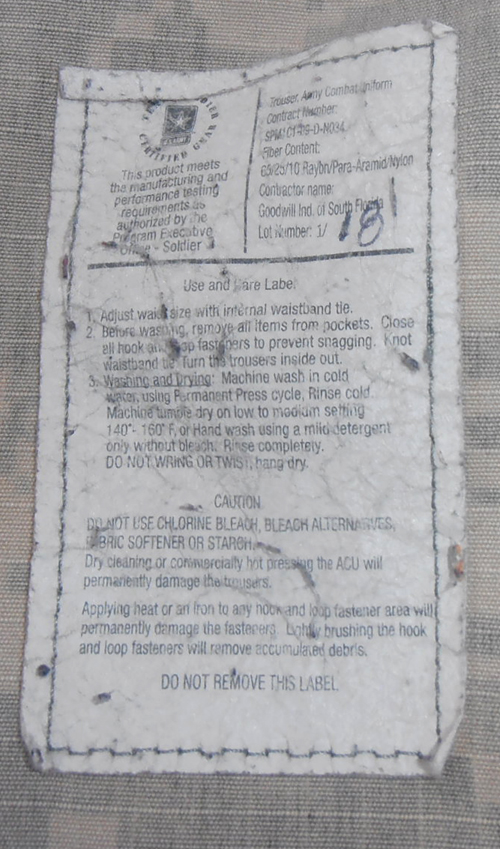 CERTIFIED GEAR
This product meets
the manufacturing and
performance testing
requirements as
authorized by the
Program Executive
Office - Soldier
Trouser, Army Combat Uniform
Contract Number:
Fiber Content:
65/25/10 Rayon/Para-Aramid/Nylon
Contractor name:
Goodwill Ind. of South Florida
Lot Number: 1/ 181
Use and Care Label
1. Adjust waist size with internal waistband tie.
2. Before washing, remove all items from pockets. Close
all hook and loop fasteners to prevent snagging. Knot
waistband tie. Turn the trousers inside out.
3. Washing and Drying: Machine wash in cold
water, using Permanent Press cycle, Rinse cold.
Machine tumble dry on low to medium setting
140°- 160° F, or Hand wash using a mild detergent
only without bleach. Rinse completely.
DO NOT WRING OR TWIST, hang dry.
CAUTION
DO NOT USE CHLORINE BLEACH, BLEACH ALTERNATIVES,
FABRIC SOFTENER OR STARCH.
Dry cleaning or commercially hot pressing the ACU will
permanently damage the trousers.
Applying heat or an iron to any hook and loop fastener area will
permanently damage the fasteners. Lightly brushing the hook
and loop fasteners will remove accumulated debris.
DO NOT REMOVE THIS LABEL